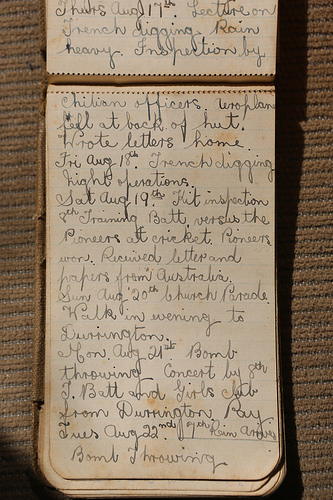 Thurs Aug 17th. Lecture on
Trench digging. Rain
heavy. Inspection by
Chilian officers. Aeroplane
fell at back of hut.
Wrote letters home.
Fri Aug 18th. Trench digging
Night operations.
Sat Aug 19th. Kit inspection
8th Training Batt. versus the
Pioneers at cricket. Pioneers
won. Received letter and
papers from Australia.
Sun Aug 20th Church Parade.
Walk in evening to
Durrington.
Mon. Aug 21st Bomb
throwing Concert by 8th
T. Batt and Girls club
from Durrington Pay
Tues Aug 22nd 9th Rein
Bomb Throwing